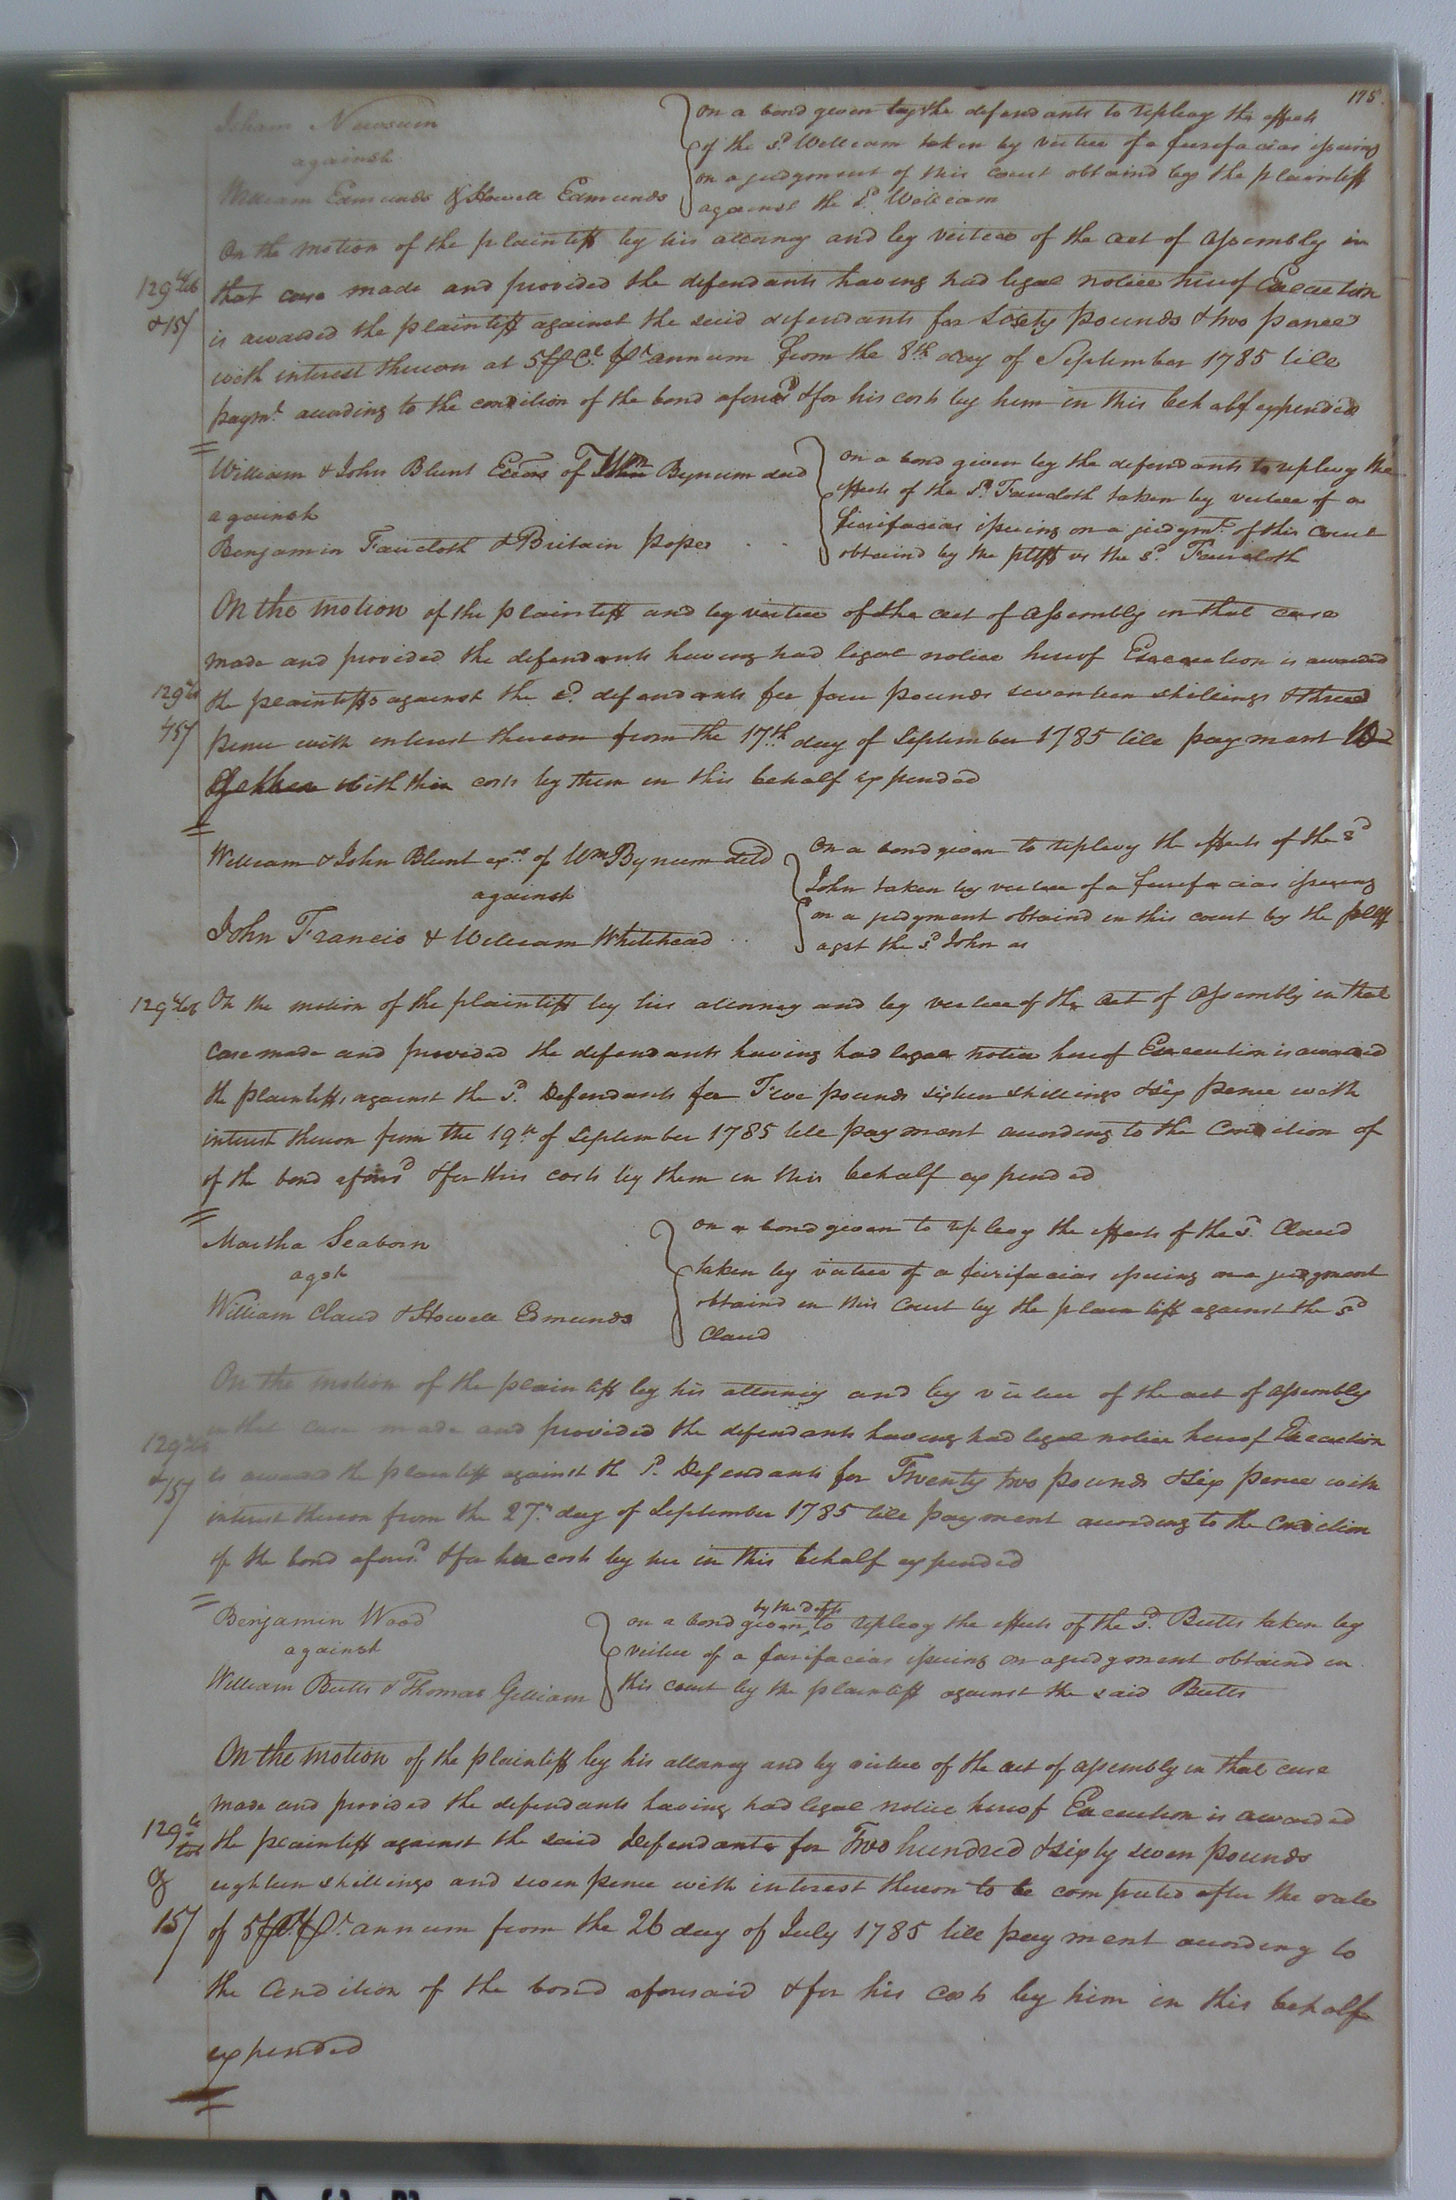 175
Isham Newsum
against
William Edmunds & Howell Edmunds
on a bond given by the defendants to replevy the effects
of the sd. William taken by virtue of a fierifacias issuing
on a judgment of this court obtaind by the plaintiff
against the sd. William
On the motion of the plaintiff by his attorney and by virtue of the act of assembly in
that case made and provided the defendants having had legal notice hereof Execution
is awarded the plaintiff against the said defendants for Sixty pounds & two pence
with interest thereon at 5 PCt. Pr annum from the 8th day of September 1785 till
paymt. according to the condition of the bond aforesd & for his costs by him in this behalf expended
129
& 15/
William & John Blunt Exors of Wm Bynum decd
against
Benjamin Faircloth & Britain pope
on a bond given by the defendants to replevy the
effects of the sd. Faircloth taken by virtue of a
fierifacias issuing on a judgmt. of this court
obtaind by the pltffs vs the sd. Faircloth
On the motion of the plaintiff and by virtue of the act of assembly in that case
made and provided the defendants having had legal notice hereof Execution is awarded
the plaintiffs against the sd. defendants for four pounds seventeen shillings & three
pence with interest thereon from the 17th. day of September 1785 till payment to
gether with their costs by them in this behalf expended
129
15/
William & John Blunt exrs of Wm Bynum decd
against
John Francis & William Whitehead
on a bond given to replevy the effects of the sd
John taken by virtue of a fierifacias issuing
on a judgment obtaind in this court by the pltff
agst the sd John
129
On the motion of the plaintiff by his attorney and by virtue of the act of assembly in that
case made and provided the defendants having had legal notice hereof Execution is awarded
the plaintiffs against the sd. Defendants for Five pounds sixteen shillings & six pence with
interest thereon from the 19th of September 1785 till payment according to the Condition of
of the bond aforesd & for their costs by them in this behalf expended
Martha Seaborn
agst
William Claud & Howell Edmunds
on a bond given to replevy the effects of the sd. Claud
taken by virtue of a fierifacias issuing on a judgment
obtaind in this Court by the plaintiff against the sd
Claud
On the motion of the plaintiff by his attorney and by virtue of the act of assembly
in that case made and provided the defendants having had legal notice hereof Execution
is awarded the plaintiff against the sd. Defendants for Twenty two pounds & six pence with
interest thereon from the 27th. day of September 1785 till payment according to the Condition
of the bond aforesd. & for her costs by her in this behalf expended
129
& 15/
Benjamin Wood
against
William Butts & Thomas Gilliam
by the Defts
on a bond given to replevy the effects of the sd. Butts taken by
virtue of a fierifacias issuing on a judgment obtaind in
this court by the plaintiff against the said Butts
On the motion of the plaintiff by his attorney and by virtue of the act of assembly in that case
made and provided the defendants having had legal notice hereof Execution is awarded
the plaintiff against the said Defendants for Two hundred & sixty seven pounds
eighteen shillings and seven pence with interest thereon to be computed after the rate
of 5 PCt Pr. annum from the 26 day of July 1785 till payment according to
the Condition of the bond aforesaid & for his costs by him in this behalf
expended
129
&
15/